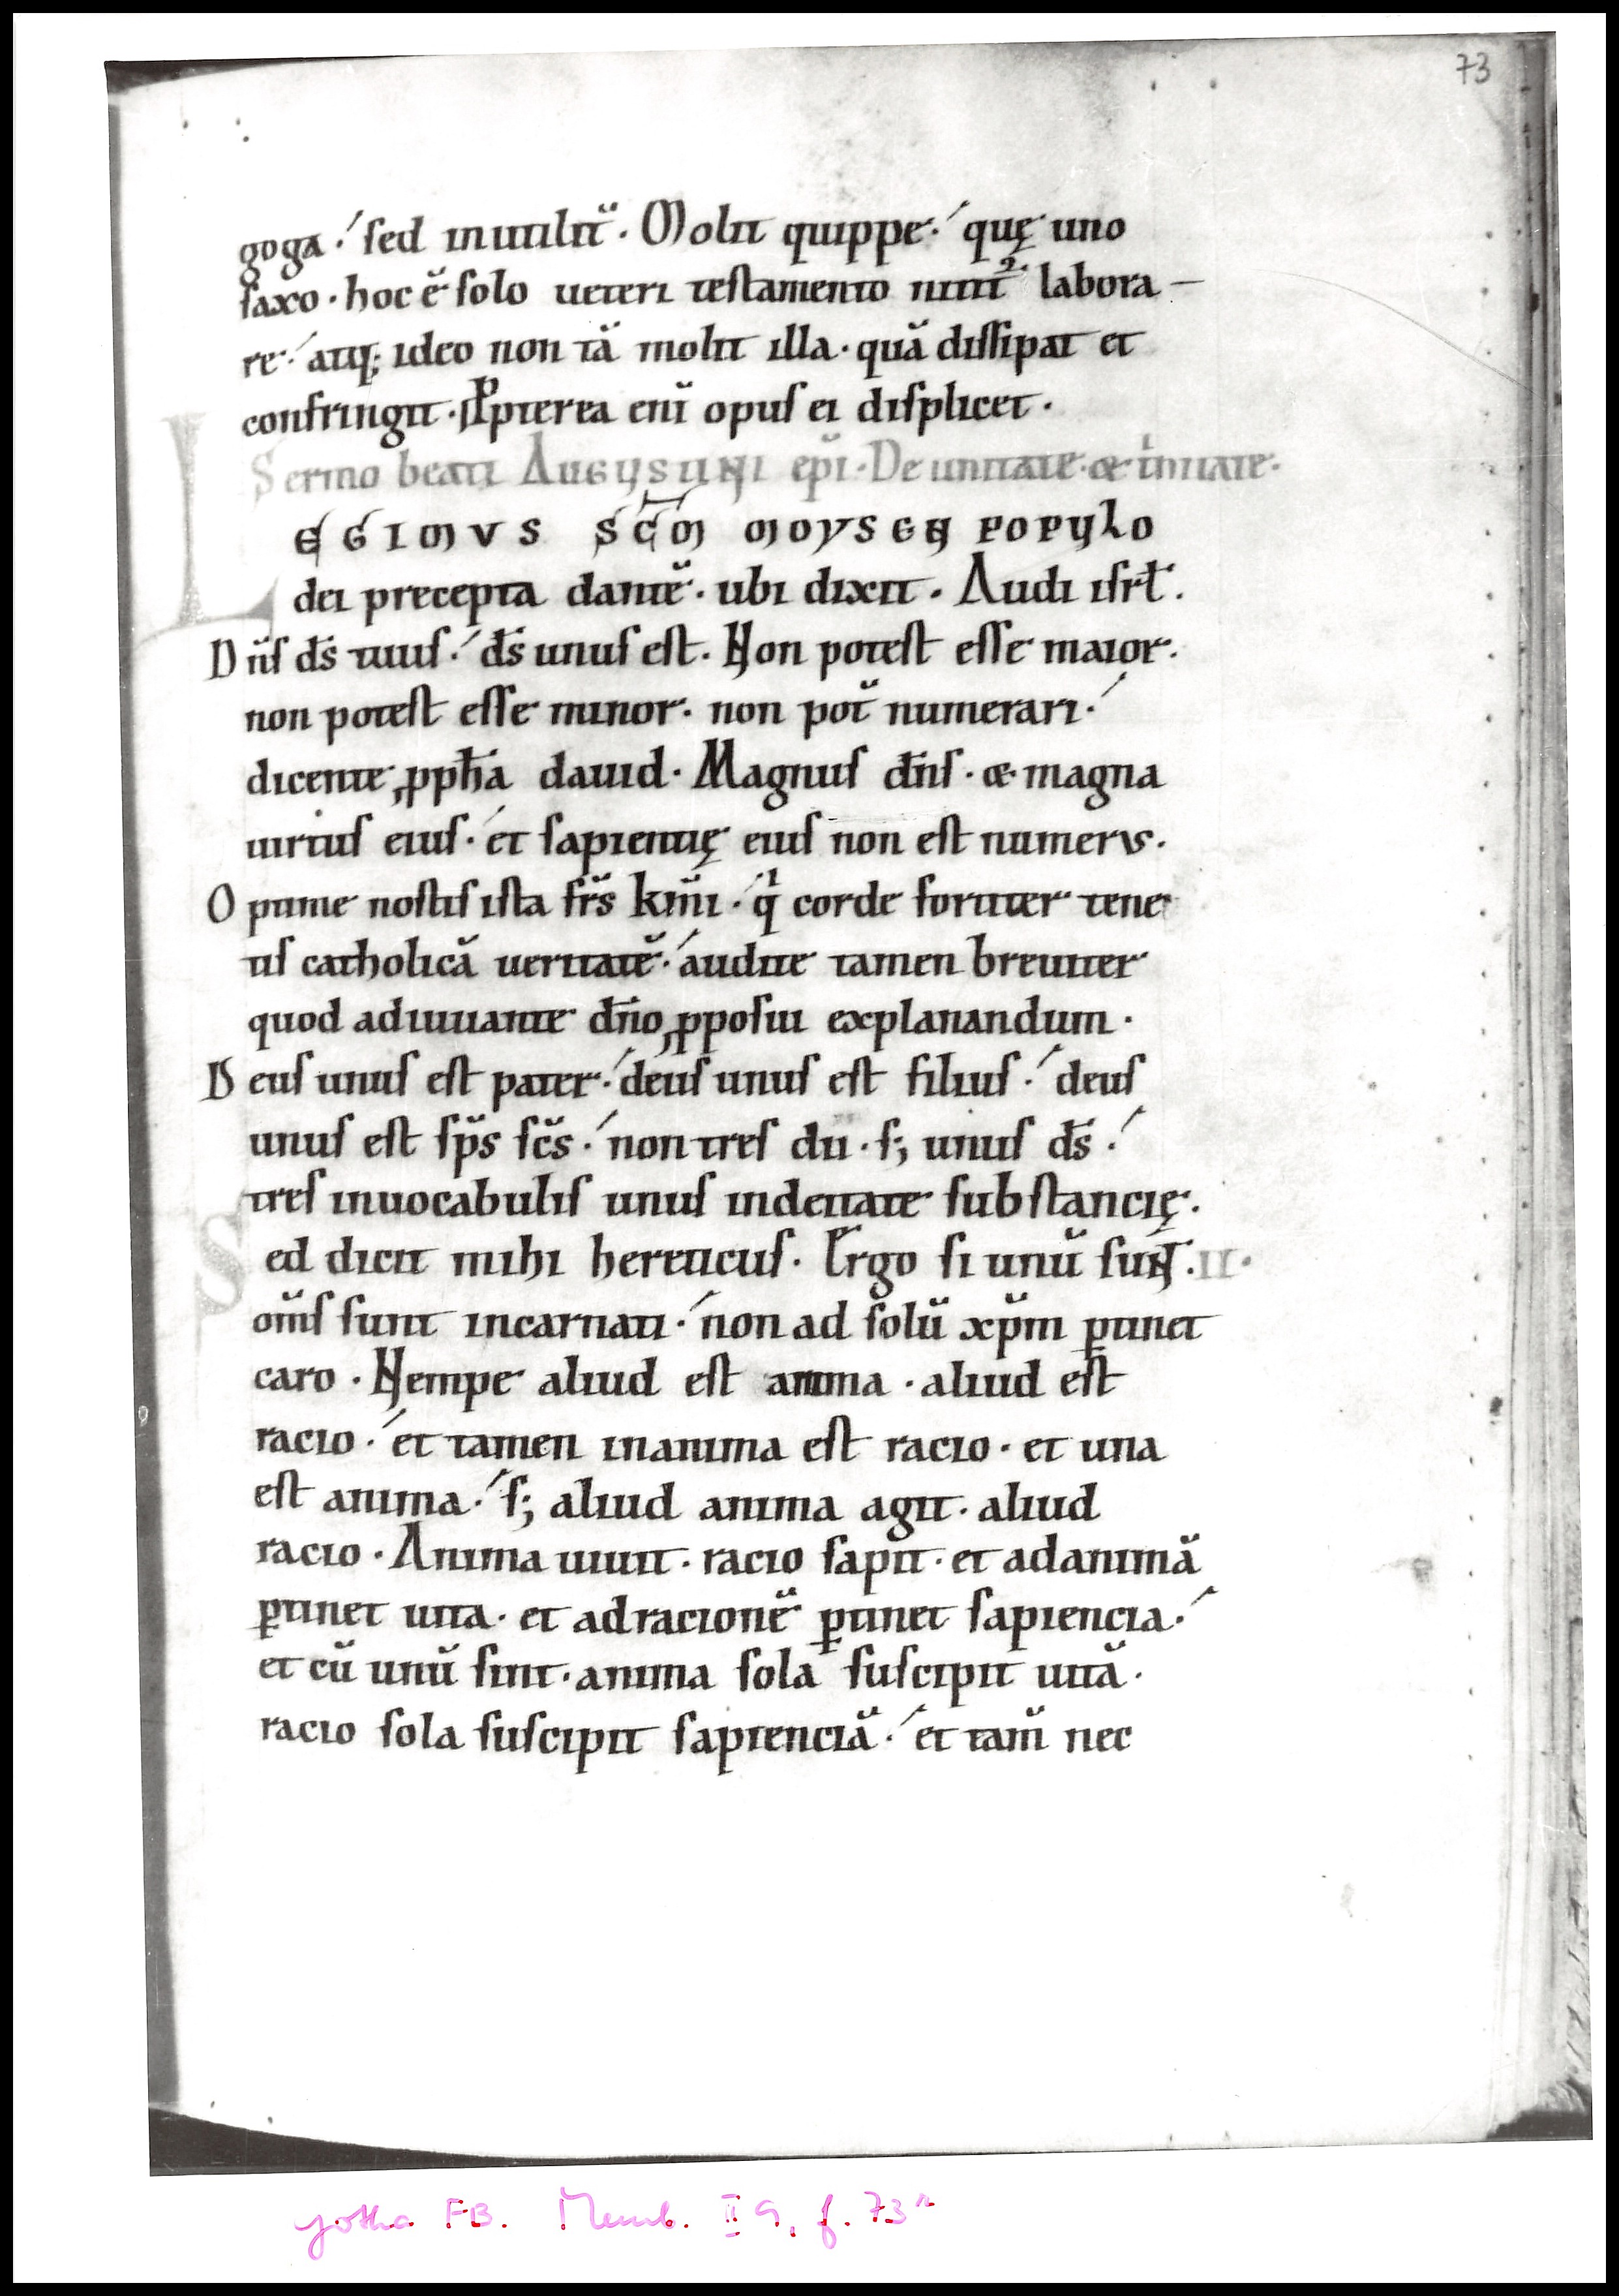 73
goga. sed inutilit̄. Molit quippe. quę uno
saxo. hoc ē solo ueteri testamento nitit᷒ labora-
re. atq; ideo non tā molit illa. quā dissipat et
confringit. Ppterea enī opus ei displicet.
Sermo beati Augustini ep̄i. De unitate. & tⁱnitate.
LEGIMVS SC̄M MOYSEN POPULO
dei precepta dantē. ubi dixit. Audi isrł.
Dn̄s ds̄ tuus. ds̄ unus est. Non potest esse maior.
non potest esse minor. non pot̄ numerari.
dicente ꝓph̄a dauid. Magnus dn̄s. & magna
uirtus eius. et sapientię eius non est numerus.
Optime nostis ista frs̄ km̄i. qⁱ corde fortiter tene
tis catholicā ueritatē. audite tamen breuiter
quod adiuuante dn̄o ꝓposui explanandum.
Deus unus est pater. deus unus est filius. deus
unus est sp̄s sc̄s. non tres dii. s; unus ds̄.
tres inuocabulis unus indeitate substancię.
Sed dicit mihi hereticus. Ergo si unū sunt. II.
om̄s sunt incarnati. non ad solū xp̄m ꝑtinet
caro. Nempe aliud est anima. aliud est
racio. et tamen inanima est racio. et una
est anima. s; aliud anima agit. aliud
racio. Anima uiuit. racio sapit. et adanimā
ꝑtinet uita. et adracionē ꝑtinet sapiencia.
et cū unū sint. anima sola suscipit uitā.
racio sola suscipit sapienciā. et tam̄ nec
Gotha FB. Memb. II 9, f. 73r